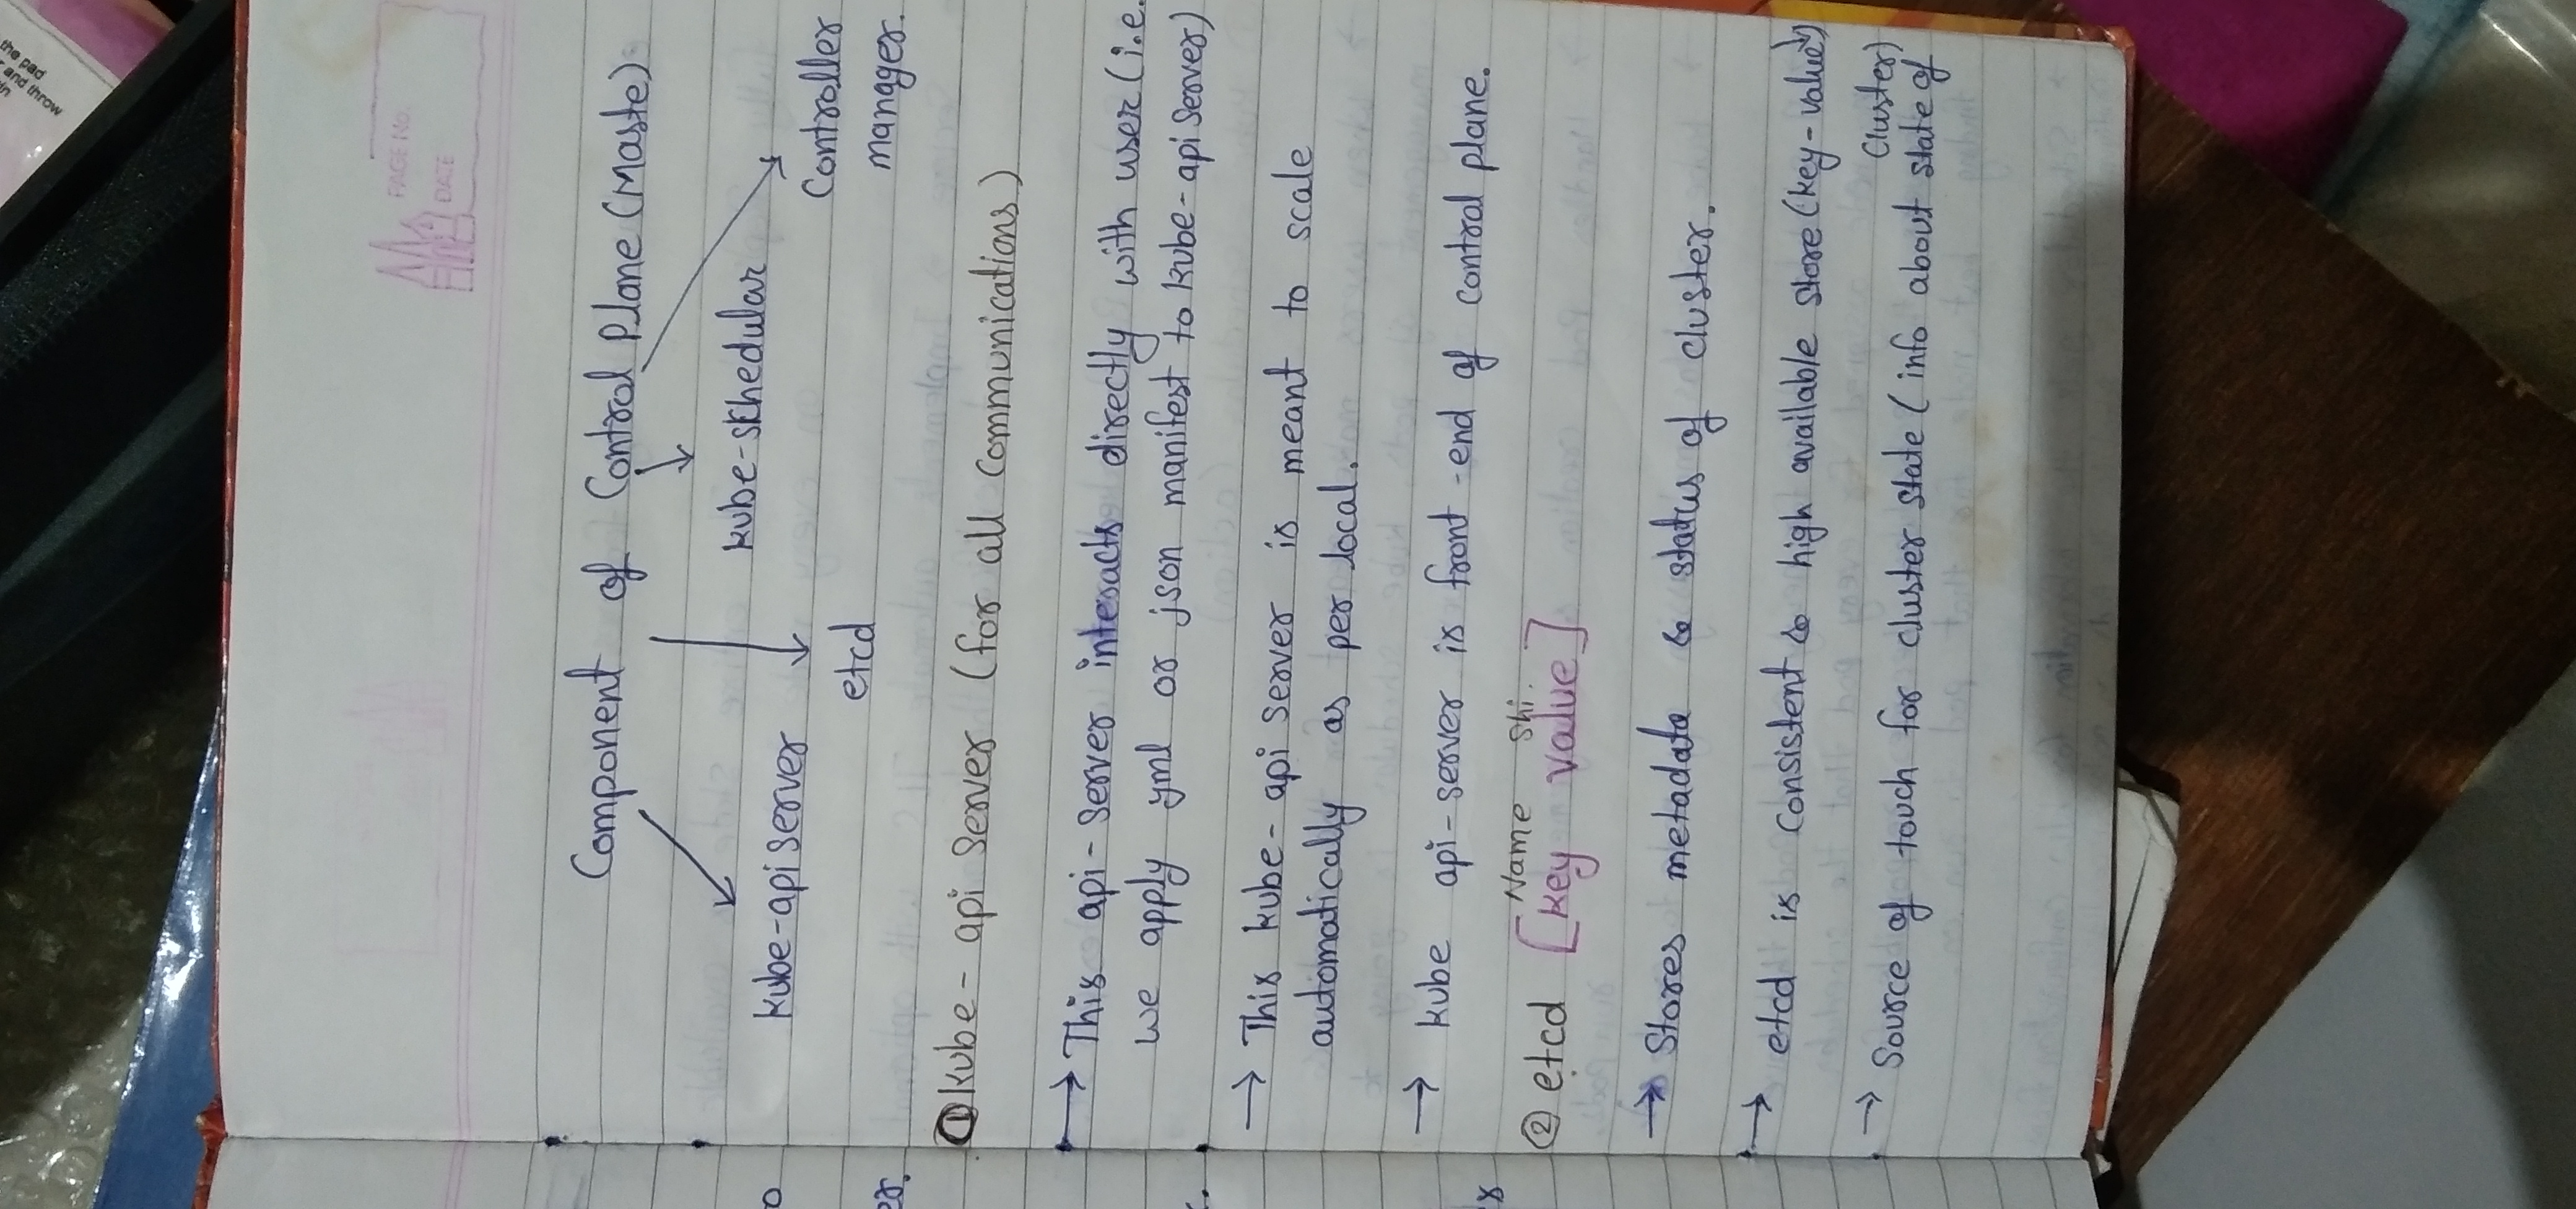 the pad
and throw
PAGE No.
DATE
Component of Control Plane (Maste)
kube-api server
etcd
kube-skhedular
Controller
manager.
① kube - api server (for all communications)
→ This api-server interacts directly with user (i.e.
we apply yml or json manifest to kube-api server)
→ This kube-api server is meant to scale
automatically as per local.
→ kube api-server is front-end of control plane.
Name Shi.
② etcd [key value]
→ Stores metadata & status of cluster.
→ etcd is consistent & high available store (key-value)
→ Source of touch for cluster state (info about state of
Cluster)